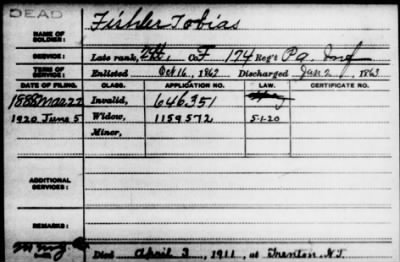 DEAD
NAME OF SOLDIER: Fishler Tobias
SERVICE: Late rank, Co. F 174 Reg't Pa. Inf
TERM OF SERVICE: Enlisted Oct 16, 1862 Discharged Jan 2, 1863
DATE OF FILING. CLASS. APPLICATION NO. LAW. CERTIFICATE NO.
1888 Mar 22 Invalid, 646.351
1920 June 5 Widow, 1159572 5-1-20
Minor,
ADDITIONAL SERVICES:
REMARKS:
Died April 3, 1911, at Trenton. N.J.